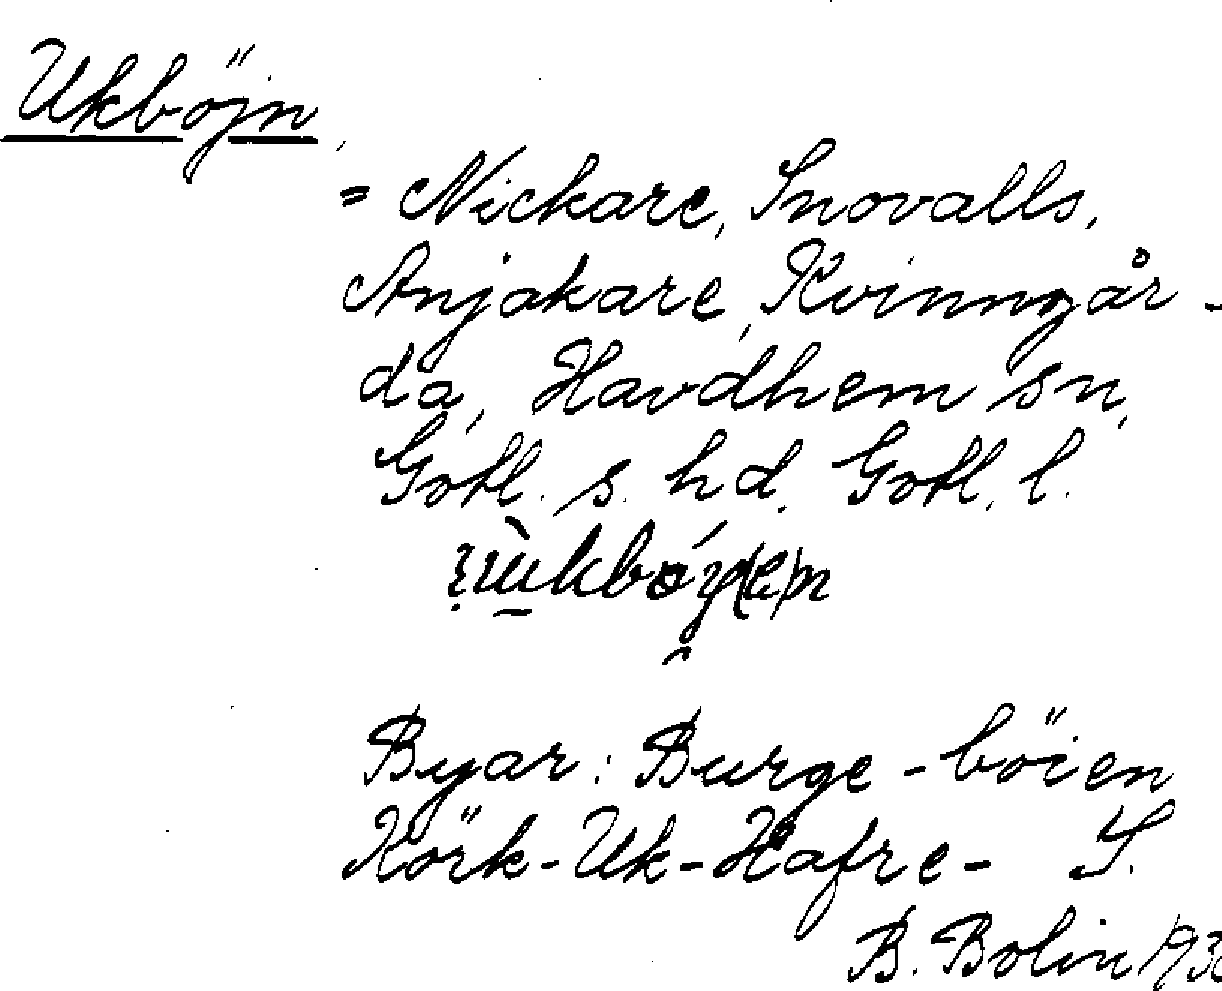 Ukböjn
= Nickare, Snovalls,
Anjakare, Kvinngår-
da, Havdhem sn,
Gotl. s. hd. Gotl. l.
Byar: Burge-böien
Körk-Uk-Hafre- S.
B. Bolin